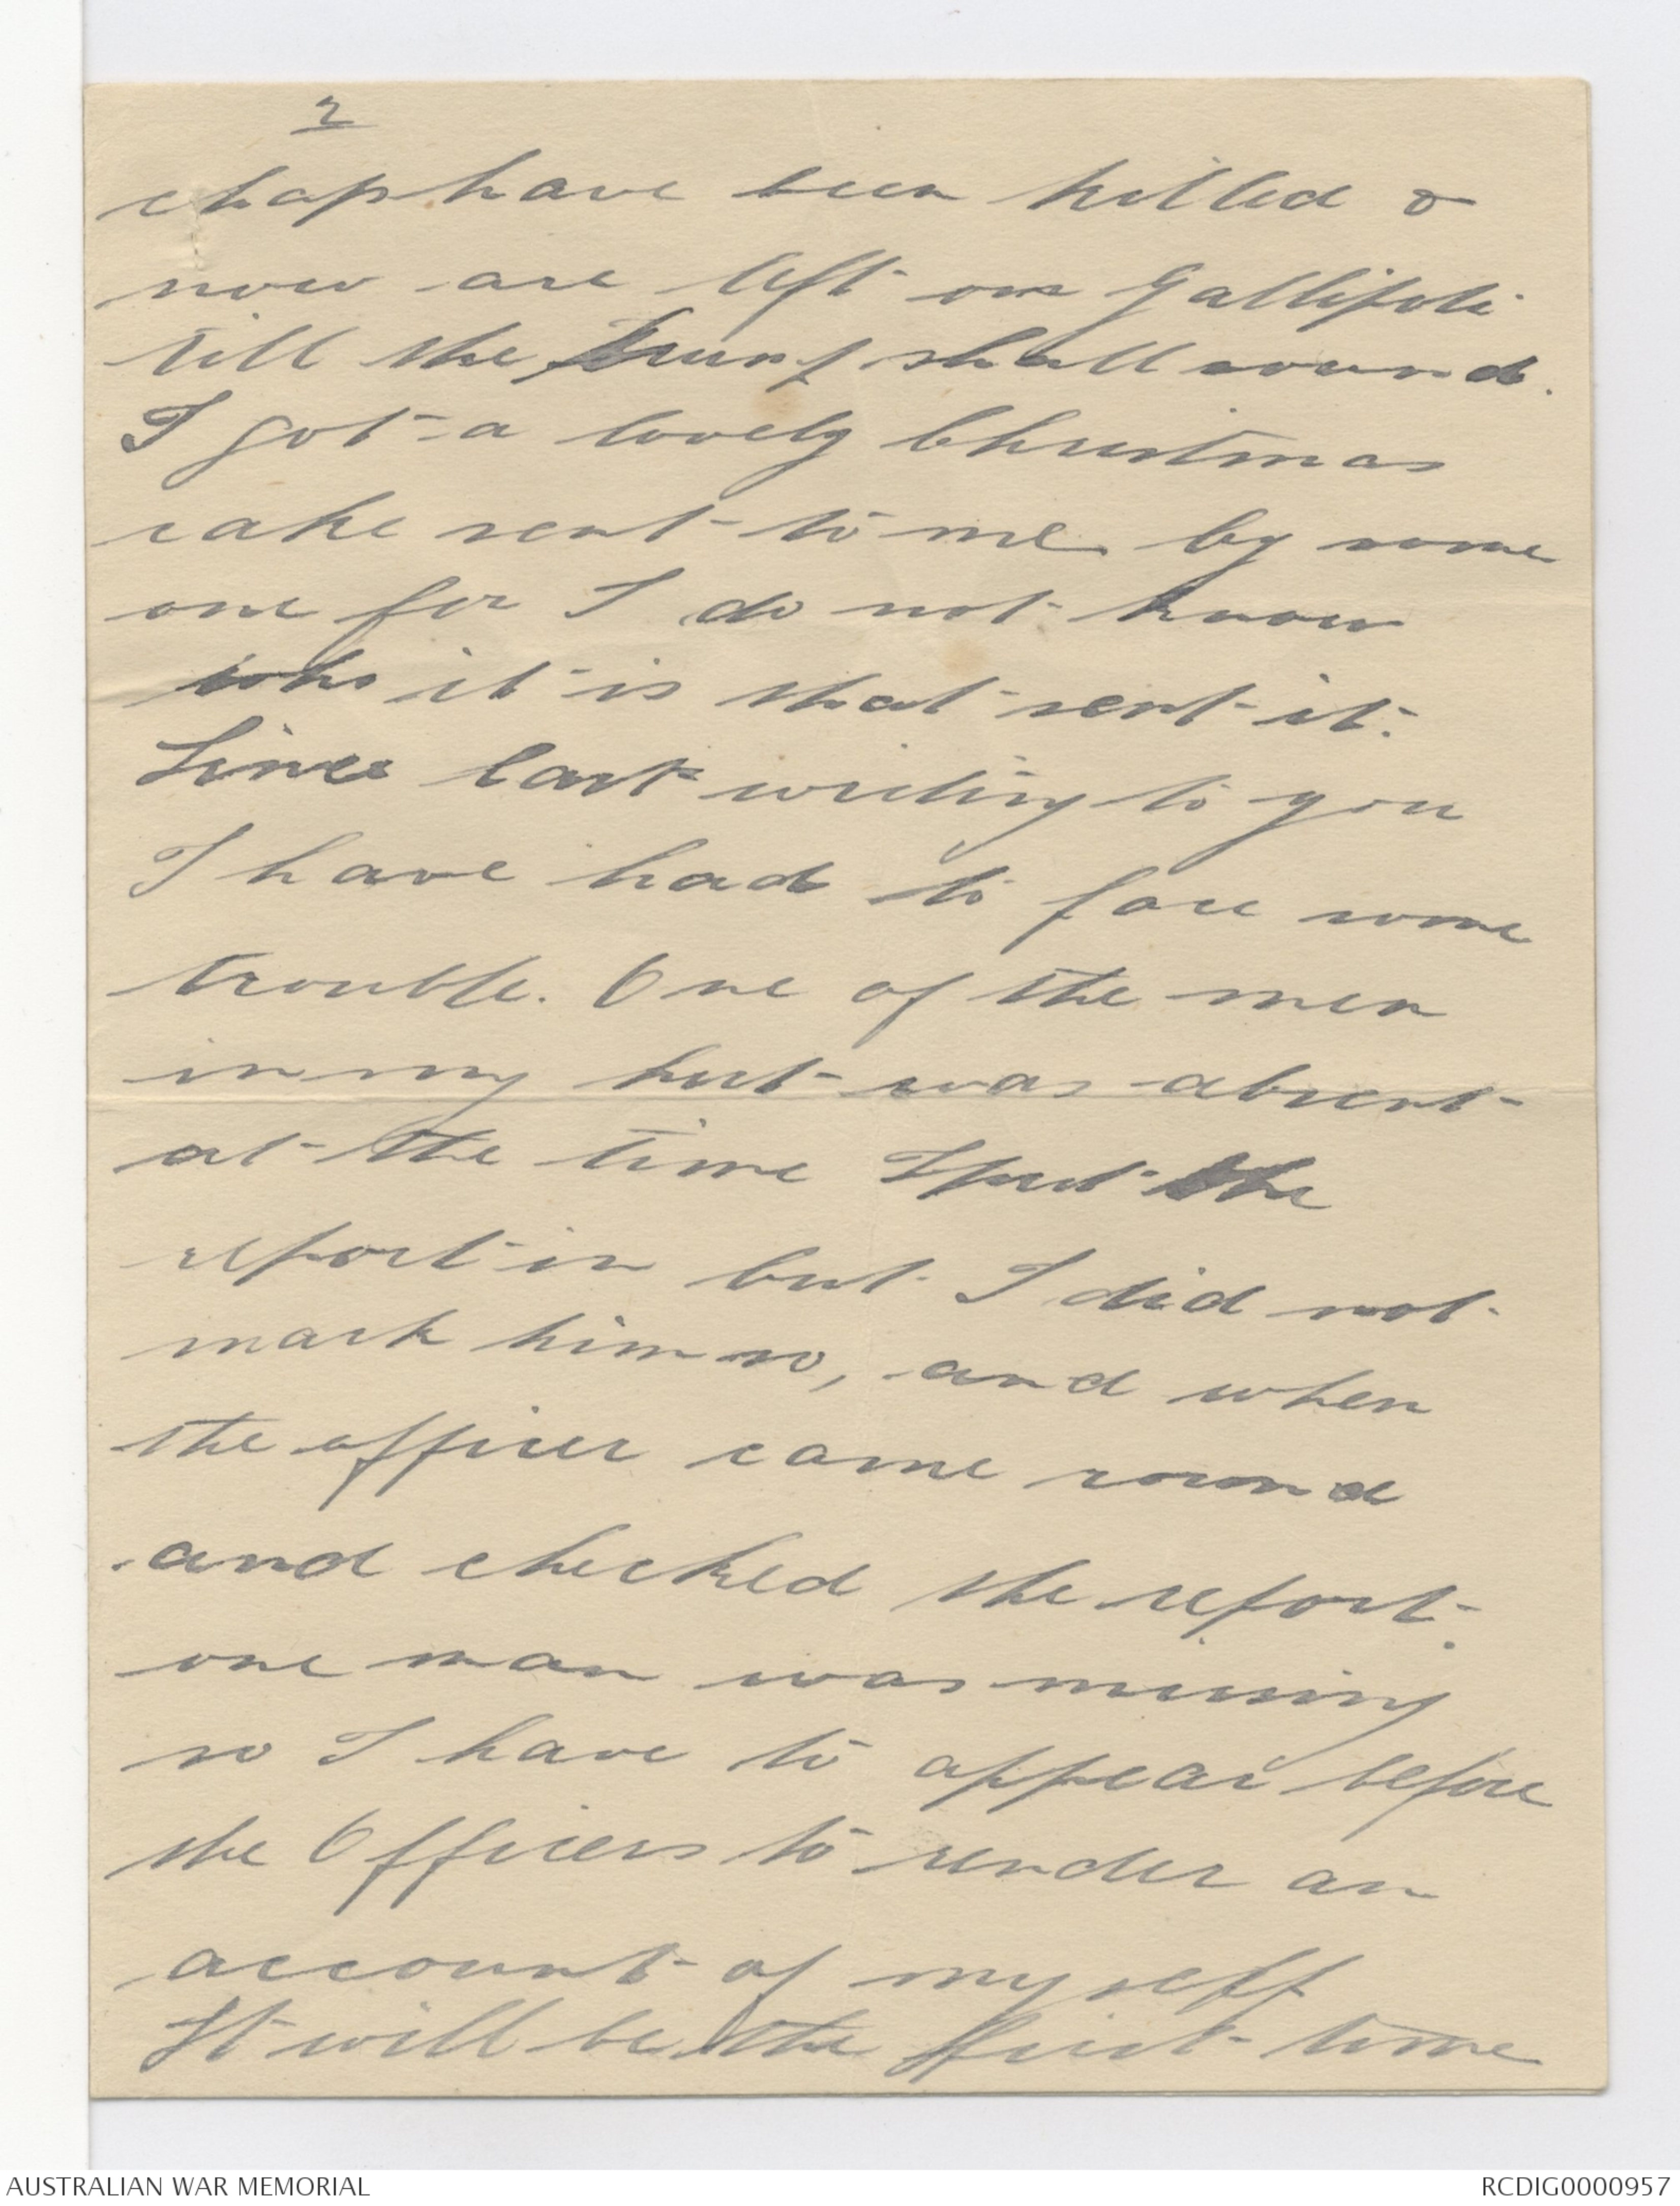 2
chap have been killed &
now are left on Gallipoli
till the trump shall sound.
I got a lovely Christmas
cake sent to me by some
one for I do not know
who it is that sent it.
Since last writing to you
I have had to face some
trouble. One of the men
in my hut was absent
at the time I put the
report in but I did not
mark him so, and when
the officer came round
and checked the report.
one man was missing
so I have to appear before
the Officers to render an
account of myself
It will be the first time
AUSTRALIAN WAR MEMORIAL
RCDIG0000957